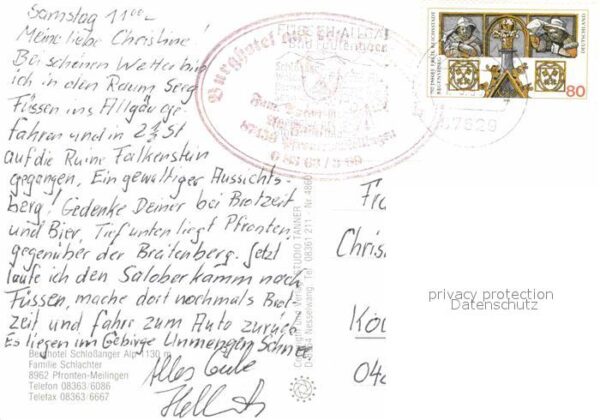 Samstag 11 00 -
Meine liebe Christine!
Bei schönem Wetter bin
ich in den Raum Seeg
Füssen ins Allgäu ge-
fahren und in 2 ½ St
auf die Ruine Falkenstein
gegangen. Ein gewaltiger Aussichts-
berg! Gedenke Deiner bei Brotzeit
und Bier. Tief unten liegt Pfronten,
gegenüber der Breitenberg. Jetzt
laufe ich den Saloberkamm nach
Füssen, mache dort nochmals Brot-
zeit und fahre zum Auto zurück
Es liegen im Gebirge Unmengen Schnee
Alles Gute
Berghotel Schloßanger Alp 1130 m
Familie Schlachter
8962 Pfronten-Meilingen
Telefon 08363/6086
Telefax 08363/6667
STUDIO TANNER
Nesselwang, Tel. 08361/211 - Nr. 4860
Burghotel
DEUTSCHLAND
80
Fr
Christ
Kö
04
privacy protection
Datenschutz